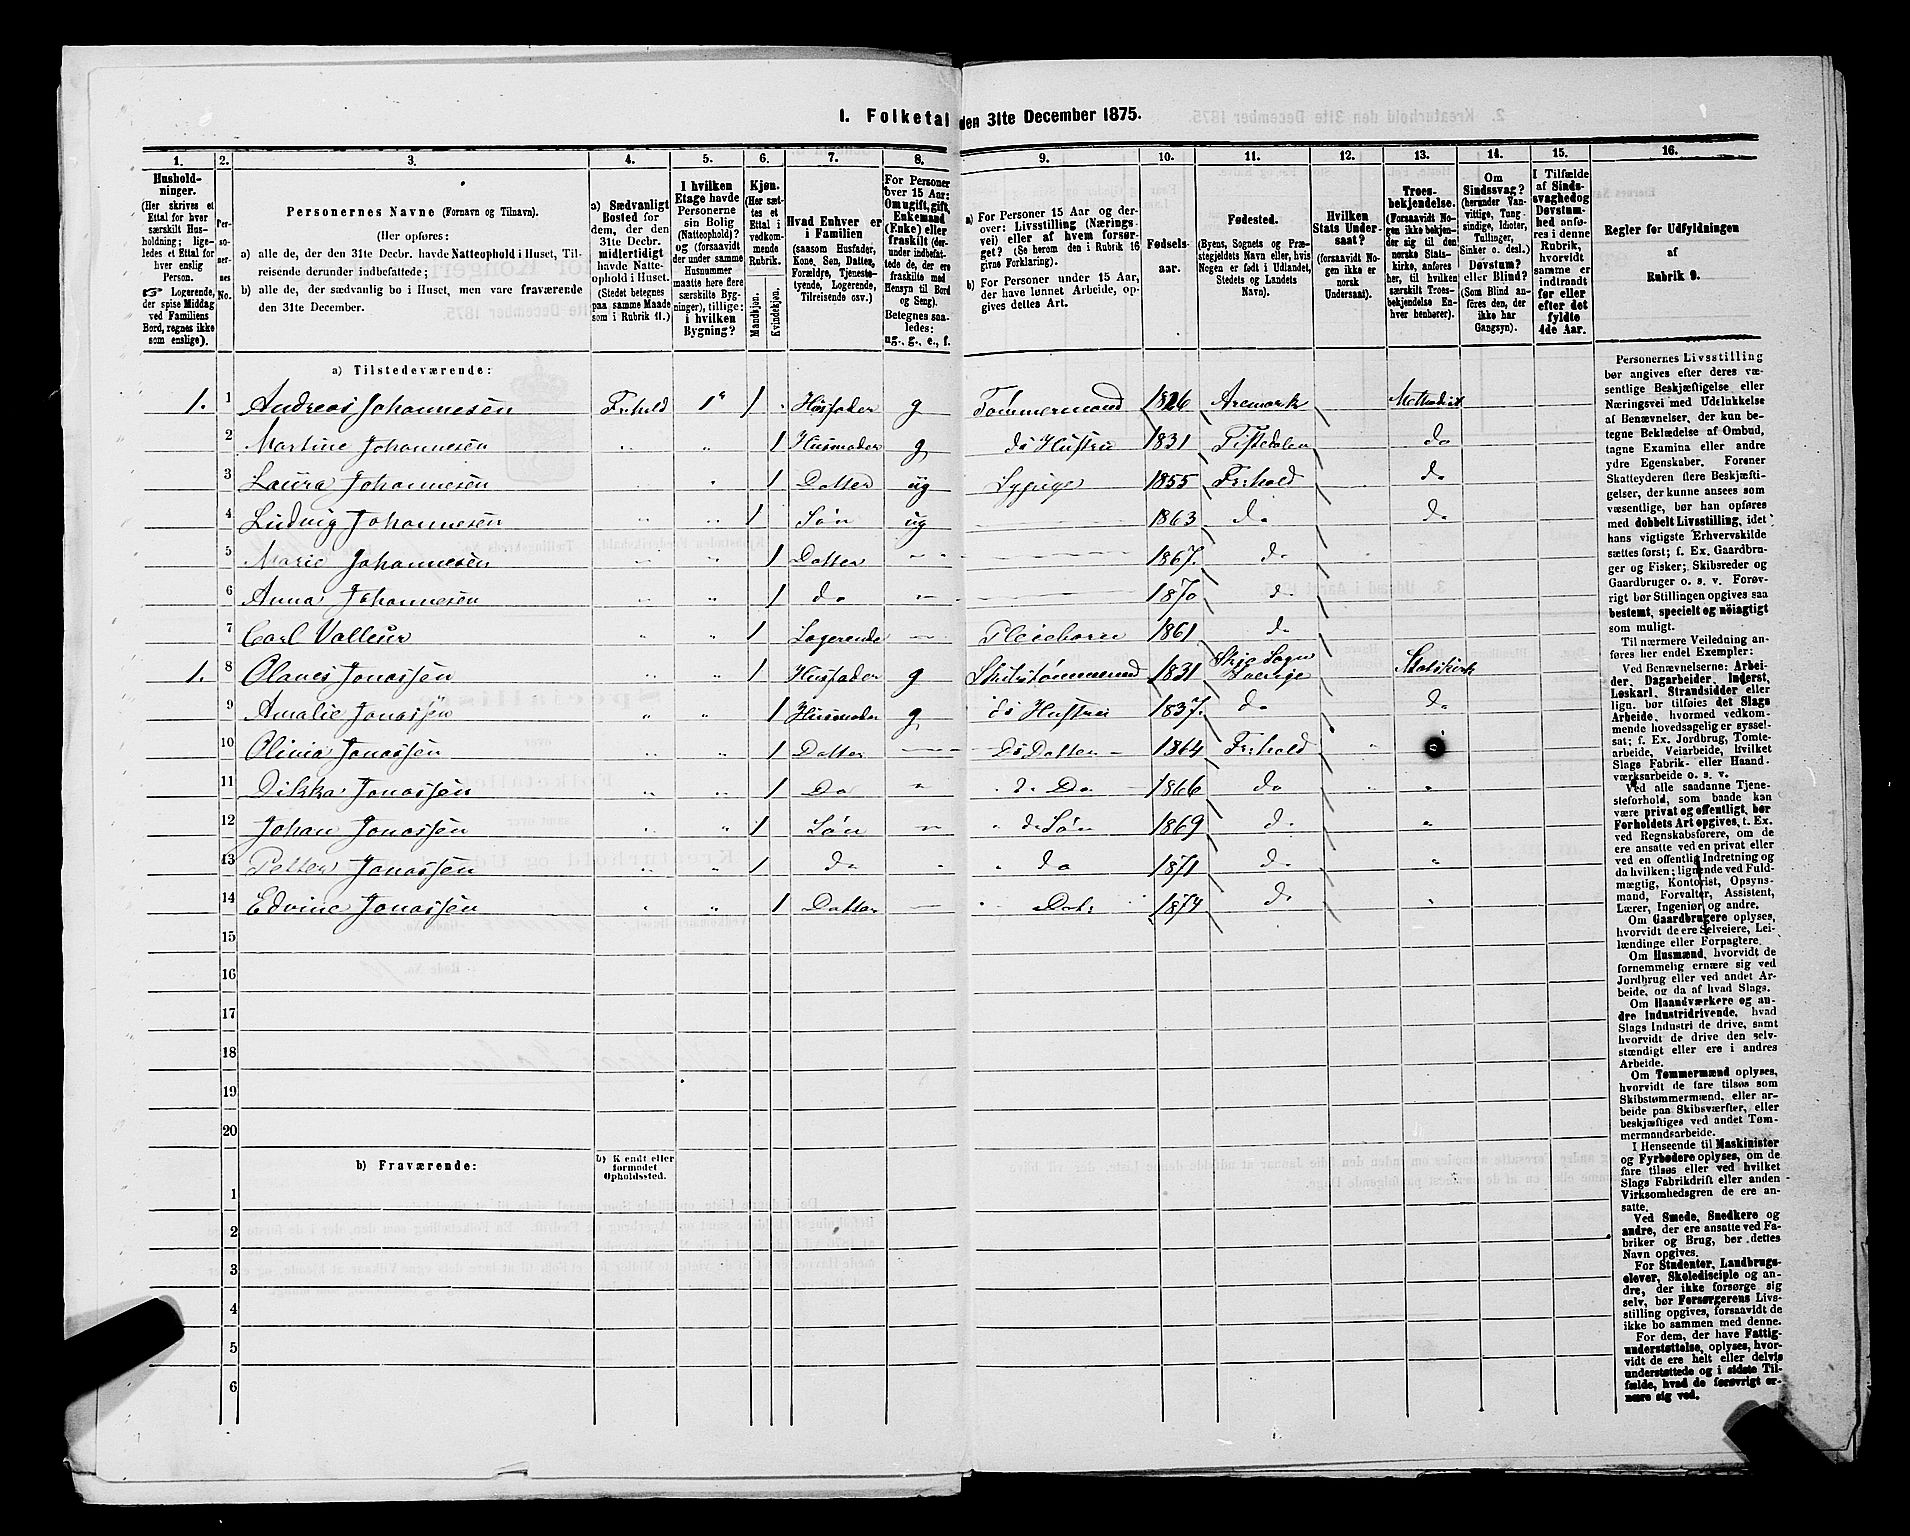 1. Folketal den 31te December 1875.
1. 2. 3. 4. 5. 6. 7. 8. 9. 10. 11. 12. 13. 14. 15. 16.
Hushold-
ninger.
(Her skrives et
Ettal for hver
særskilt Hus-
holdning; lige-
ledes et Ettal for
hver enslig
Person.
Logerende,
der spise Middag
ved Familiens
Bord, regnes ikke
som enslige).
Per-
so-
ner-
nes
No.
Personernes Navne (Fornavn og Tilnavn).
(Her opføres:
a) alle de, der den 31te Decbr. havde Natteophold i Huset, Til-
reisende derunder indbefattede;
b) alle de, der sædvanlig bo i Huset, men vare fraværende
den 31te December.
a) Sædvanligt
Bosted for
dem, der den
31te Decbr.
midlertidigt
havde Natte-
ophold i Huset.
(Stedet betegnes
paa samme Maade
som i Rubrik 11.)
I hvilken
Etage havde
Personerne
sin Bolig
(Natteophold)?
og (forsaavidt
der under samme
Husnummer
maatte høre flere
særskilte Byg-
ninger), tillige:
i hvilken
Bygning?
Kjøn.
(Her sæt-
tes et
Ettal i
vedkom-
mende
Rubrik.
Mandkjøn.
Kvindekjøn.
Hvad Enhver er
i Familien
(saasom Husfader,
Kone, Søn, Datter,
Forældre, Tjeneste-
tyende, Logerende,
Tilreisende osv.)
For Personer
over 15 Aar:
Om ugift, gift,
Enkemand
(Enke) eller
fraskilt (der-
under indbefat-
tede de, der ere
fraskilte med
Hensyn til Bord
og Seng).
Betegnes saa-
ledes:
ug., g., e., f.
a) For Personer 15 Aar og der-
over: Livsstilling (Nærings-
vei) eller af hvem forsør-
get? (Se herom den i Rubrik 16
givne Forklaring).
b) For Personer under 15 Aar,
der have lønnet Arbeide, op-
gives dettes Art.
Fødsels-
aar.
Fødested.
(Byens, Sognets og Præ-
stegjeldets Navn eller, hvis
Nogen er født i Udlandet,
Stedets og Landets
Navn).
Hvilken
Stats Under-
saat?
(forsaavidt No-
gen ikke er
norsk
Undersaat).
Troes-
bekjendelse.
(Forsaavidt No-
gen ikke bekjen-
der sig til den
norske Stats-
kirke, anføres
her, til hvilken
særskilt Troes-
bekjendelse En-
hver henhører).
Om
Sindssvag?
(herunder Van-
vittige, Tung-
sindige, Idioter,
Tullinger,
Sinker o. desl.)
Døvstum?
eller Blind?
(Som Blind an-
føres den, der
ikke har
Gangsyn).
I Tilfælde
af Sinds-
svaghed og
Døvstum-
hed anfø-
res i denne
Rubrik,
hvorvidt
samme er
indtraadt
før eller
efter det
fyldte
4de Aar.
Regler for Udfyldningen
af
Rubrik 9.
a) Tilstedeværende:
1. 1 Andreas Johannesen Fr.hald 1" 1 Husfader g Tømmermand 1826 Aremark Methodist
2 Martine Johannesen " " 1 Husmoder g ds Hustru 1831 Tistedalen do
3 Laura Johannesen " 1 Datter ug Sypige 1855 Fr.hald do
4 Ludvig Johannesen " " 1 Søn ug 1863 do do
5 Marie Johannesen " " 1 Datter — — 1867. do
6 Anna Johannesen " " 1 do — 1870 do
7 Carl " " 1 Logerende — 1861 do
1. 8 Olaves Jonassen " " 1 Husfader g Skibstømmermand 1831 Skje Sogn Sverige Statskirk
9 Amalie Jonassen " " 1 Husmoder g ds Hustru 1837. do do
10 Olivia Jonassen " " 1 Datter — ds Datter 1864 Fr.hald " 0
11 Dikka Jonassen " " 1 Do " d. Do 1866 do " "
12 Johan Jonassen " " 1 Søn — " d. Søn 1869 do "
13 Petter Jonassen " " 1 do " " do 1871 do "
14 Edvine Jonassen " " 1 Datter — " Datr 1874 do
15
16
17
18
19
20
b) Fraværende:
b) Kendt eller
formodet
Opholdssted.
1
2
3
4
5
6
Personernes Livsstilling
bør angives efter deres væ-
sentlige Beskjæftigelse eller
Næringsvei med Udelukkelse
af Benævnelser, der kun be-
tegne Beklædelse af Ombud,
tagne Examina eller andre
ydre Egenskaber. Forener
Skatteyderen flere Beskjæfti-
gelser, der kunne ansees som
væsentlige, bør han opføres
med dobbelt Livsstilling, idet
hans vigtigste Erhvervskilde
sættes først; f. Ex. Gaardbru-
ger og Fisker; Skibsreder og
Gaardbruger o. s. v. Forøv-
rigt bør Stillingen opgives saa
bestemt, specielt og nøiagtigt
som muligt.
Til nærmere Veiledning an-
føres her endel Exempler:
Ved Benævnelserne: Arbei-
der, Dagarbeider, Inderst,
Løskarl, Strandsidder eller
lign. bør tilføies det Slags
Arbeide, hvormed vedkom-
mende hovedsagelig er syssel-
sat; f. Ex. Jordbrug, Tomte-
arbeide, Veiarbeide, hvilket
Slags Fabrik- eller Haand-
værksarbeide o. s. v.
Ved alle saadanne Tjene-
steforhold, som baade kan
være privat og offentligt, bør
Forholdets Art opgives, t. Ex.
ved Regnskabsførere, om de
ere ansatte ved en privat eller
ved en offentlig Indretning og
da hvilken; lignende ved Fuld-
mægtig, Kontorist, Opsyns-
mand, Forvalter, Assistent,
Lærer, Ingeniør og andre.
Om Gaardbrugere oplyses,
hvorvidt de ere Selveiere, Lei-
lændinge eller Forpagtere.
Om Husmænd, hvorvidt de
fornemmelig ernære sig ved
Jordbrug eller ved andet Ar-
beide, og da af hvad Slags.
Om Haandværkere og an-
dre Industridrivende, hvad
Slags Industri de drive, samt
hvorvidt de drive den selv-
stændigt eller ere i andres
Arbeide.
Om Tømmermænd oplyses,
hvorvidt de fare tilsøs som
Skibstømmermænd, eller ar-
beide paa Skibsværfter, eller
beskjæftiges ved andet Tøm-
mermandsarbeide.
I Henseende til Maskinister
og Fyrbødere oplyses, om de
fare tilsøs eller ved hvilket
Slags Fabrikdrift eller anden
Virksomhedsgren de ere an-
satte.
Ved Smede, Snedkere og
andre, der ere ansatte ved Fa-
briker og Brug, bør dettes
Navn opgives.
For Studenter, Landbrugs-
elever, Skoledisciple og an-
dre, der ikke forsørge sig
selv, bør Forsørgerens Livs-
stilling opgives, forsaavidt de
ikke bo sammen med denne.
For dem, der have Fattig-
understøttelse, oplyses, hvor-
vidt de ere helt eller delvis
understøttede og i sidste Til-
fælde, hvad de forøvrigt er-
nære sig ved.